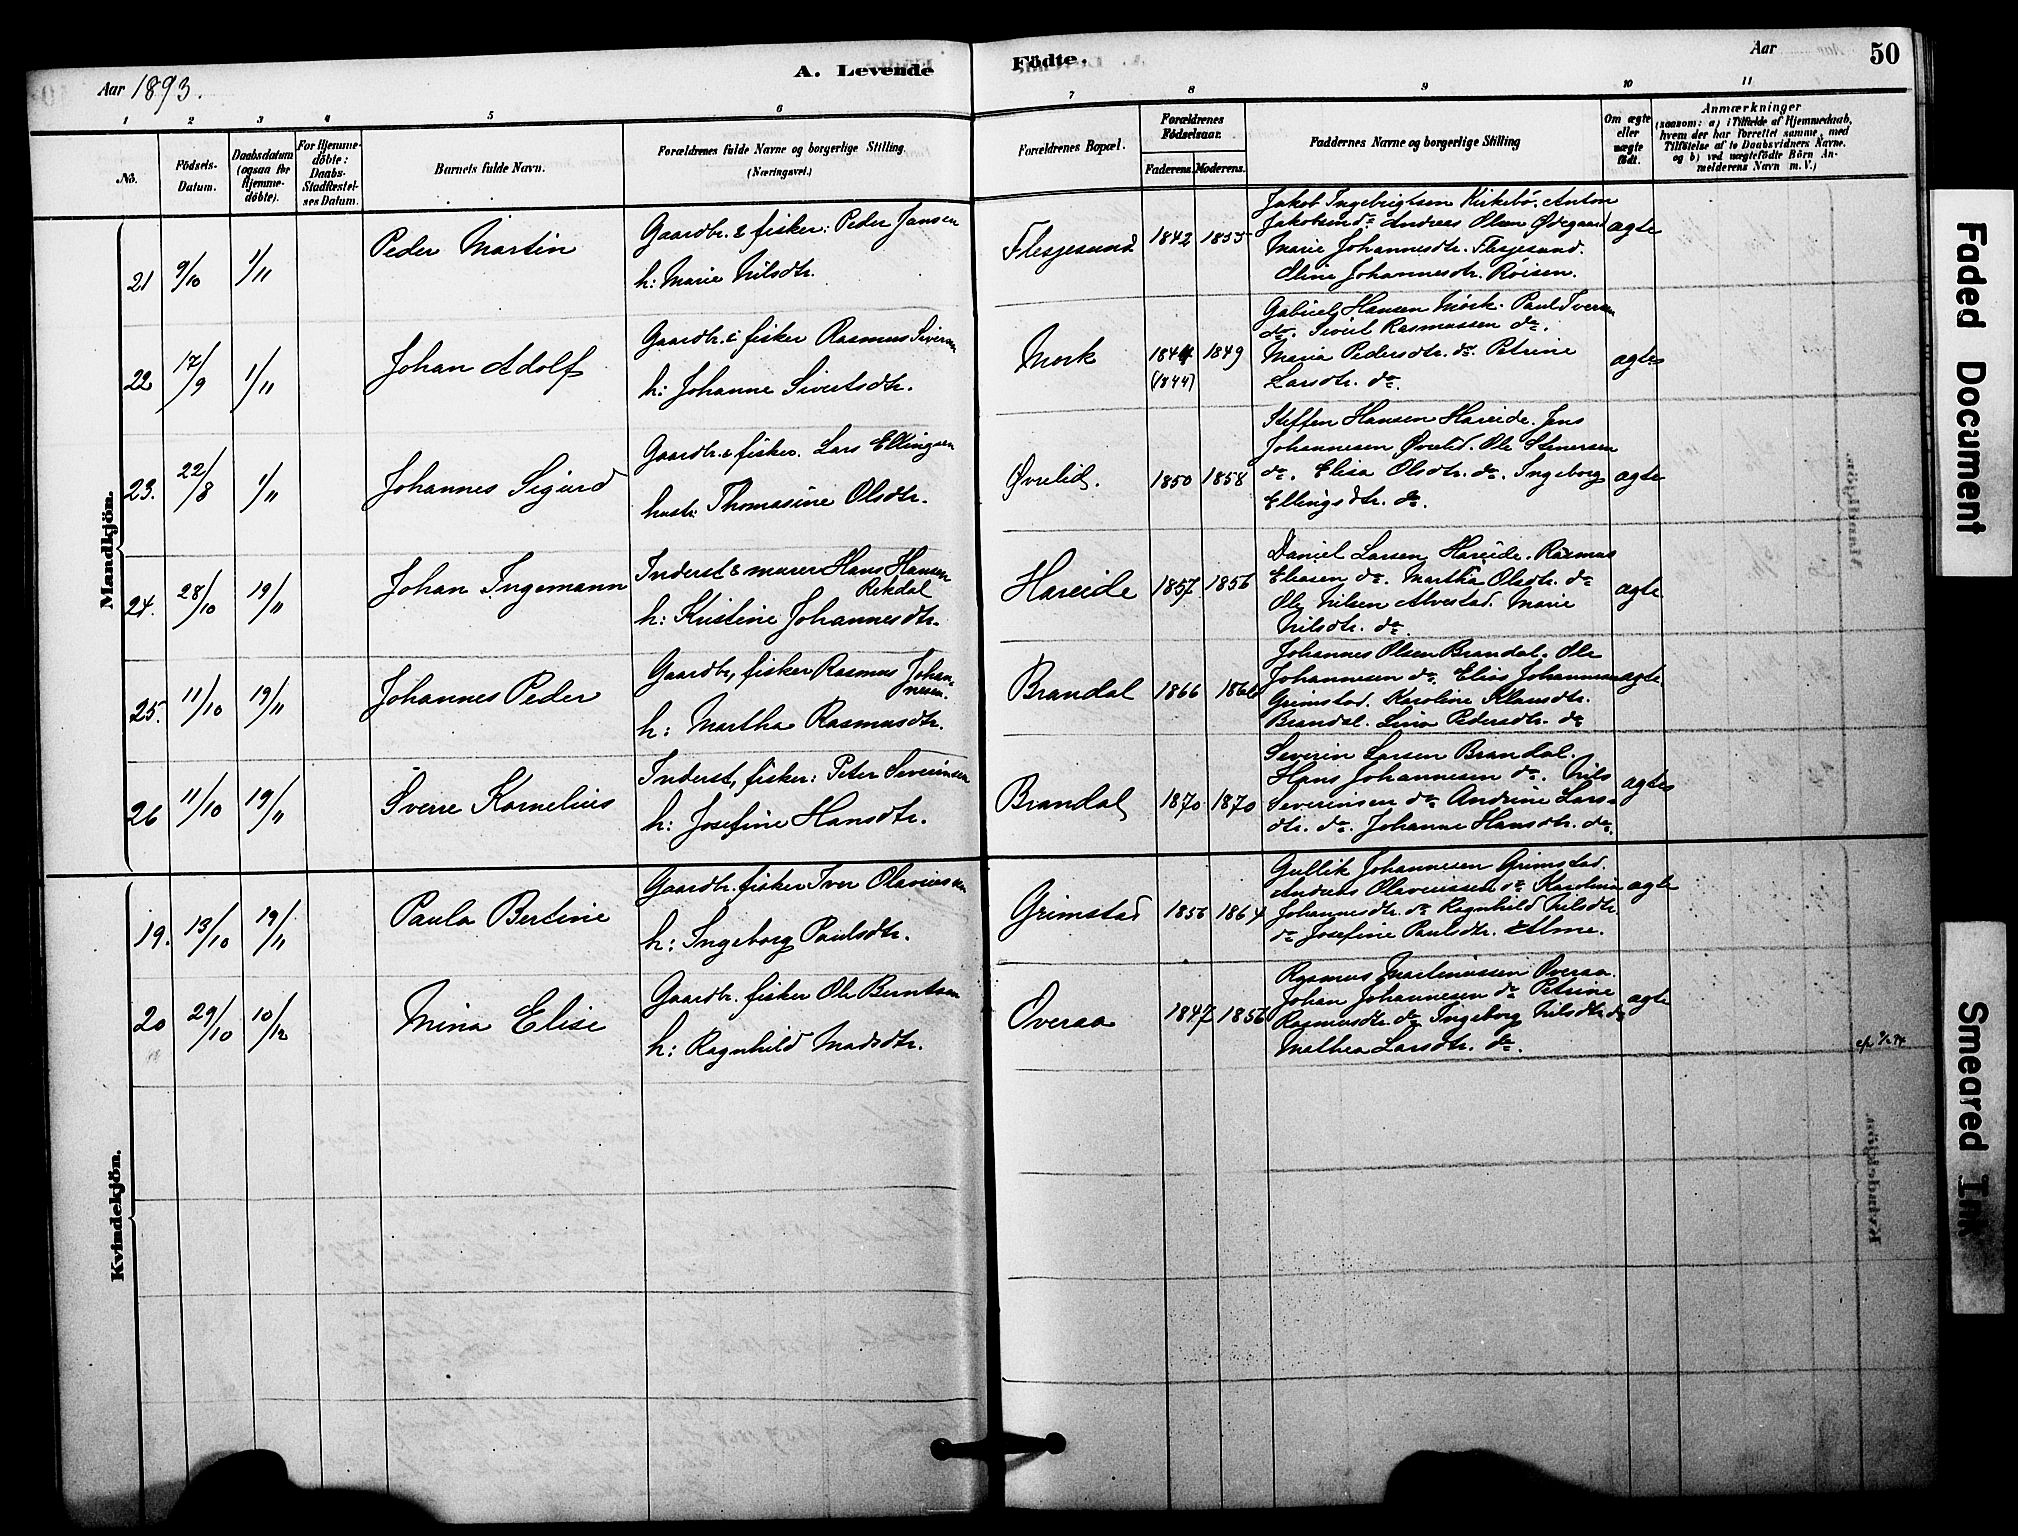 Aar 1893.
A. Levende
Födte.
Aar
50
1 2 3 4 5 6 7 8 9 10 11
No.
Födsels-Datum.
Daabsdatum (ogsaa for Hjemmedöbte).
For Hjemmedöbte: Daabs-Stadfæstelses Datum.
Barnets fulde Navn.
Forældrenes fulde Navne og borgerlige Stilling (Næringsvei.)
Forældrenes Bopæl.
Forældrenes Födselsaar.
Faderens. Moderens.
Faddernes Navne og borgerlige Stilling
Om ægte eller uægte födt.
Anmærkninger
(saasom: a) i Tilfælde af Hjemmedaab, hvem der har forrettet samme, med Tilföielse af to Daabsvidners Navne, og b) ved uægtefödte Börn Anmelderens Navn m. V.)
Mandkjön.
21 9/10 1/11 Peder Martin
Gaardbr. & fisker: Peder Jansen
h: Marie Nilsdtr.
Flesjesund 1842 1855
Jakob Ingebrigtsen Kirkebø. Anton
Jakobsen do Andreas Olsen Ødegaard
Marie Johannesdtr. Flesjesund.
Oline Johannesdtr. Røisen.
ægte
22 17/9 1/11 Johan Adolf
Gaardbr. & fisker Rasmus Siversen
h: Johanne Sivertsdtr.
Mork 1844 1849
(1844)
Gabriel Hansen Mork. Paul Iversen
do. Sivert Rasmussen do.
Maria Pedersdtr. do. Petrine
Larsdtr. do.
ægte
23. 22/8 1/11 Johannes Sigurd
Gaardbr. & fisker. Lars Ellingsen
hustr: Thomasine Olsdtr.
Øvrelid. 1850 1858
Steffen Hansen Hareide. Jens
Johannesen Øvrelid. Ole Stenersen
do. Elisa Olsdtr. do. Ingeborg
Ellingsdtr. do.
ægte
24. 28/10 19/11 Johan Ingemann
Inderst & murer Hans Hansen
Rekdal
h: Kristine Johannesdtr.
Hareide 1857 1856
Daniel Larsen Hareide. Rasmus
Eliasen do. Martha Olsdtr. do
Ole Nilsen Alvestad. Marie
Nilsdtr. do
ægte
25. 11/10 19/11 Johannes Peder
Gaardbr, fisker Rasmus Johannesen.
h: Martha Rasmusdtr.
Brandal 1866
Johannes Olsen Brandal. Ole
Johannesen do. Elias Johannesen
Grimstad. Karoline Klausdtr.
Brandal. Lina Pedersdtr. do
ægte
26 11/10 19/11 Sverre Kornelius
Inderst, fisker: Peter Severinsen
h: Josefine Hansdtr.
Brandal 1870 1870
Severin Larsen Brandal.
Hans Johannesen do. Nils
Severinsen do Andrine Lars-
dtr. do. Johanne Hansdtr. do.
ægte
Kvindekjön.
19. 13/10 19/11 Paula Bertine
Gaardbr. fisker Iver Olaviussen
h: Ingeborg Paulsdtr.
Grimstad 1856 1864
Gullik Johannesen Grimstad.
Andreas Olaviussen do Karolina
Johannesdtr. do Ragnhild Nilsdtr.
do Josefine Paulsdtr. Alme.
ægte
20 29/10 10/12 Mina Elise
Gaardbr. fisker Ole Berntsen
h: Ragnhild Madsdtr.
Overaa 1847 1856
Rasmus Martinussen Overaa.
Johan Johannesen do Petrine
Rasmusdtr. do Ingeborg Nilsdtr. do
Mathea Larsdtr. do.
ægte
Faded Document
Smeared Ink